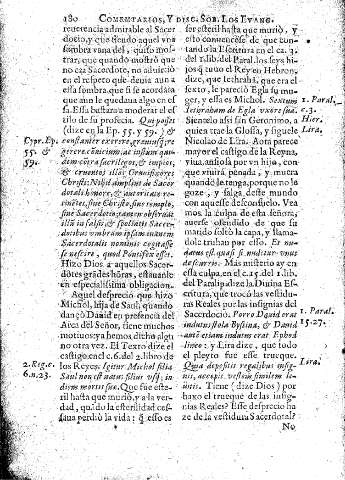 180 COMENTARIOS, Y DISC. SOB. LOS EVANG.
reuerencia admirable al Sacer
docio, y que siendo aquel vna
sombra vana del, quiso mos-
trar, que quando mostrò que
no era Sacerdote, no aduirtiò
en el respeto que deuia aun a
essa sombra. que si se acordàra
que aun le quedaua algo en es-
sa. Essa bastara a moderar el es-
tilo de su profecia. Qui posset
(dize en la Ep. 55. y 59.) &
constanter exerere, grauiusq; re
gerere,
dem cura sacrilegos, & impios,
& cruentos illos Crucifixores
Christi: Nihil amplius de Sacer
dotali honore, & auctoritate re-
tinêtes, sine Christo, sine templo,
sine Sacerdotio: tamen obseruãt
illũ in falsis, & spoliatis Sacer-
dotibus vmbram ipsam inanem
Sacerdotalis nominis cogitasse
se nescire, quod Pontifex esset.
Hizo Dios a aquellos Sacer-
dotes grãdes hõras, estauante
en especialissima obligacion.
Aquel desprecio que hizo
Michol, hija de Saul, quando
dançò Dauid en presencia del
Arca del Señor, tiene muchos
motiuos y a hemos dicho algu
na otra vez. El Texto dize el
castigo.en el c.6. del 2. libro de
los Reyes. Igitur Michol filia
Saul non est natus filius vsq; in
diem mortis suæ. Que fue este-
ril hasta que muriò, y a la ver-
dad, quãdo la esterilidad ces-
sara perdiò la vida: q̃ esso es
Cypr. Ep.
55. &
59.
2. Reg. c.
6. n. 23.
ser esteril hasta que muriò, y
esto cõmencese de que con-
tando la Escritura en el ca. 3.
del 1.lib. del Paral. los seys hi-
jos q̃ tuuo el Rey en Hebron,
dize, que Iethraàn, que era el
sexto, le pareciò Egla su mu-
ger, y essa es Michol. Sextum
Ietgraham de Egla vxore sua.
Sientelo assi san Geronimo, a
quien trae la Glossa, y siguele
Nicolao de Lira. Aora parece
mayor el castigo de la Reyna,
viua, ansiosa por vn hijo, con
que viuirà penada, y muera
quando le tenga, porque no le
goze, y salga deste mundo
con aquel desconsuelo. Vea
mos la culpa de esta señora,
auerse ofendido de que su
marido soltò la capa, y llaman-
dole truhan por ello. Et nu-
datus est, quasi si nudetur vnus
de scurris. Mas misterio ay en
essa culpa, en el c.15. del 1. lib.
del Paralip dize la Diuina Es-
critura, que trocò las vestidu-
ras Reales por las insignias del
Sacerdocio. Porro Dauid erat
indutus stola Byssina, & Dauid
autẽ etiam indutus erat Ephod
lineo: y Lira dize, que todo
el pleyto fue esse trueque.
Quia depositis regalibus insig-
nijs, accepit vestem similem le-
uitis. Tiene (dize Dios) por
baxo el trueque de las insig-
nias Reales? Esse desprecio ha
ze de la vestidura Sacerdotal?
No
1. Paral.
c. 3.
Hier.
Lira.
1. Paral.
15. 27.
Lira.